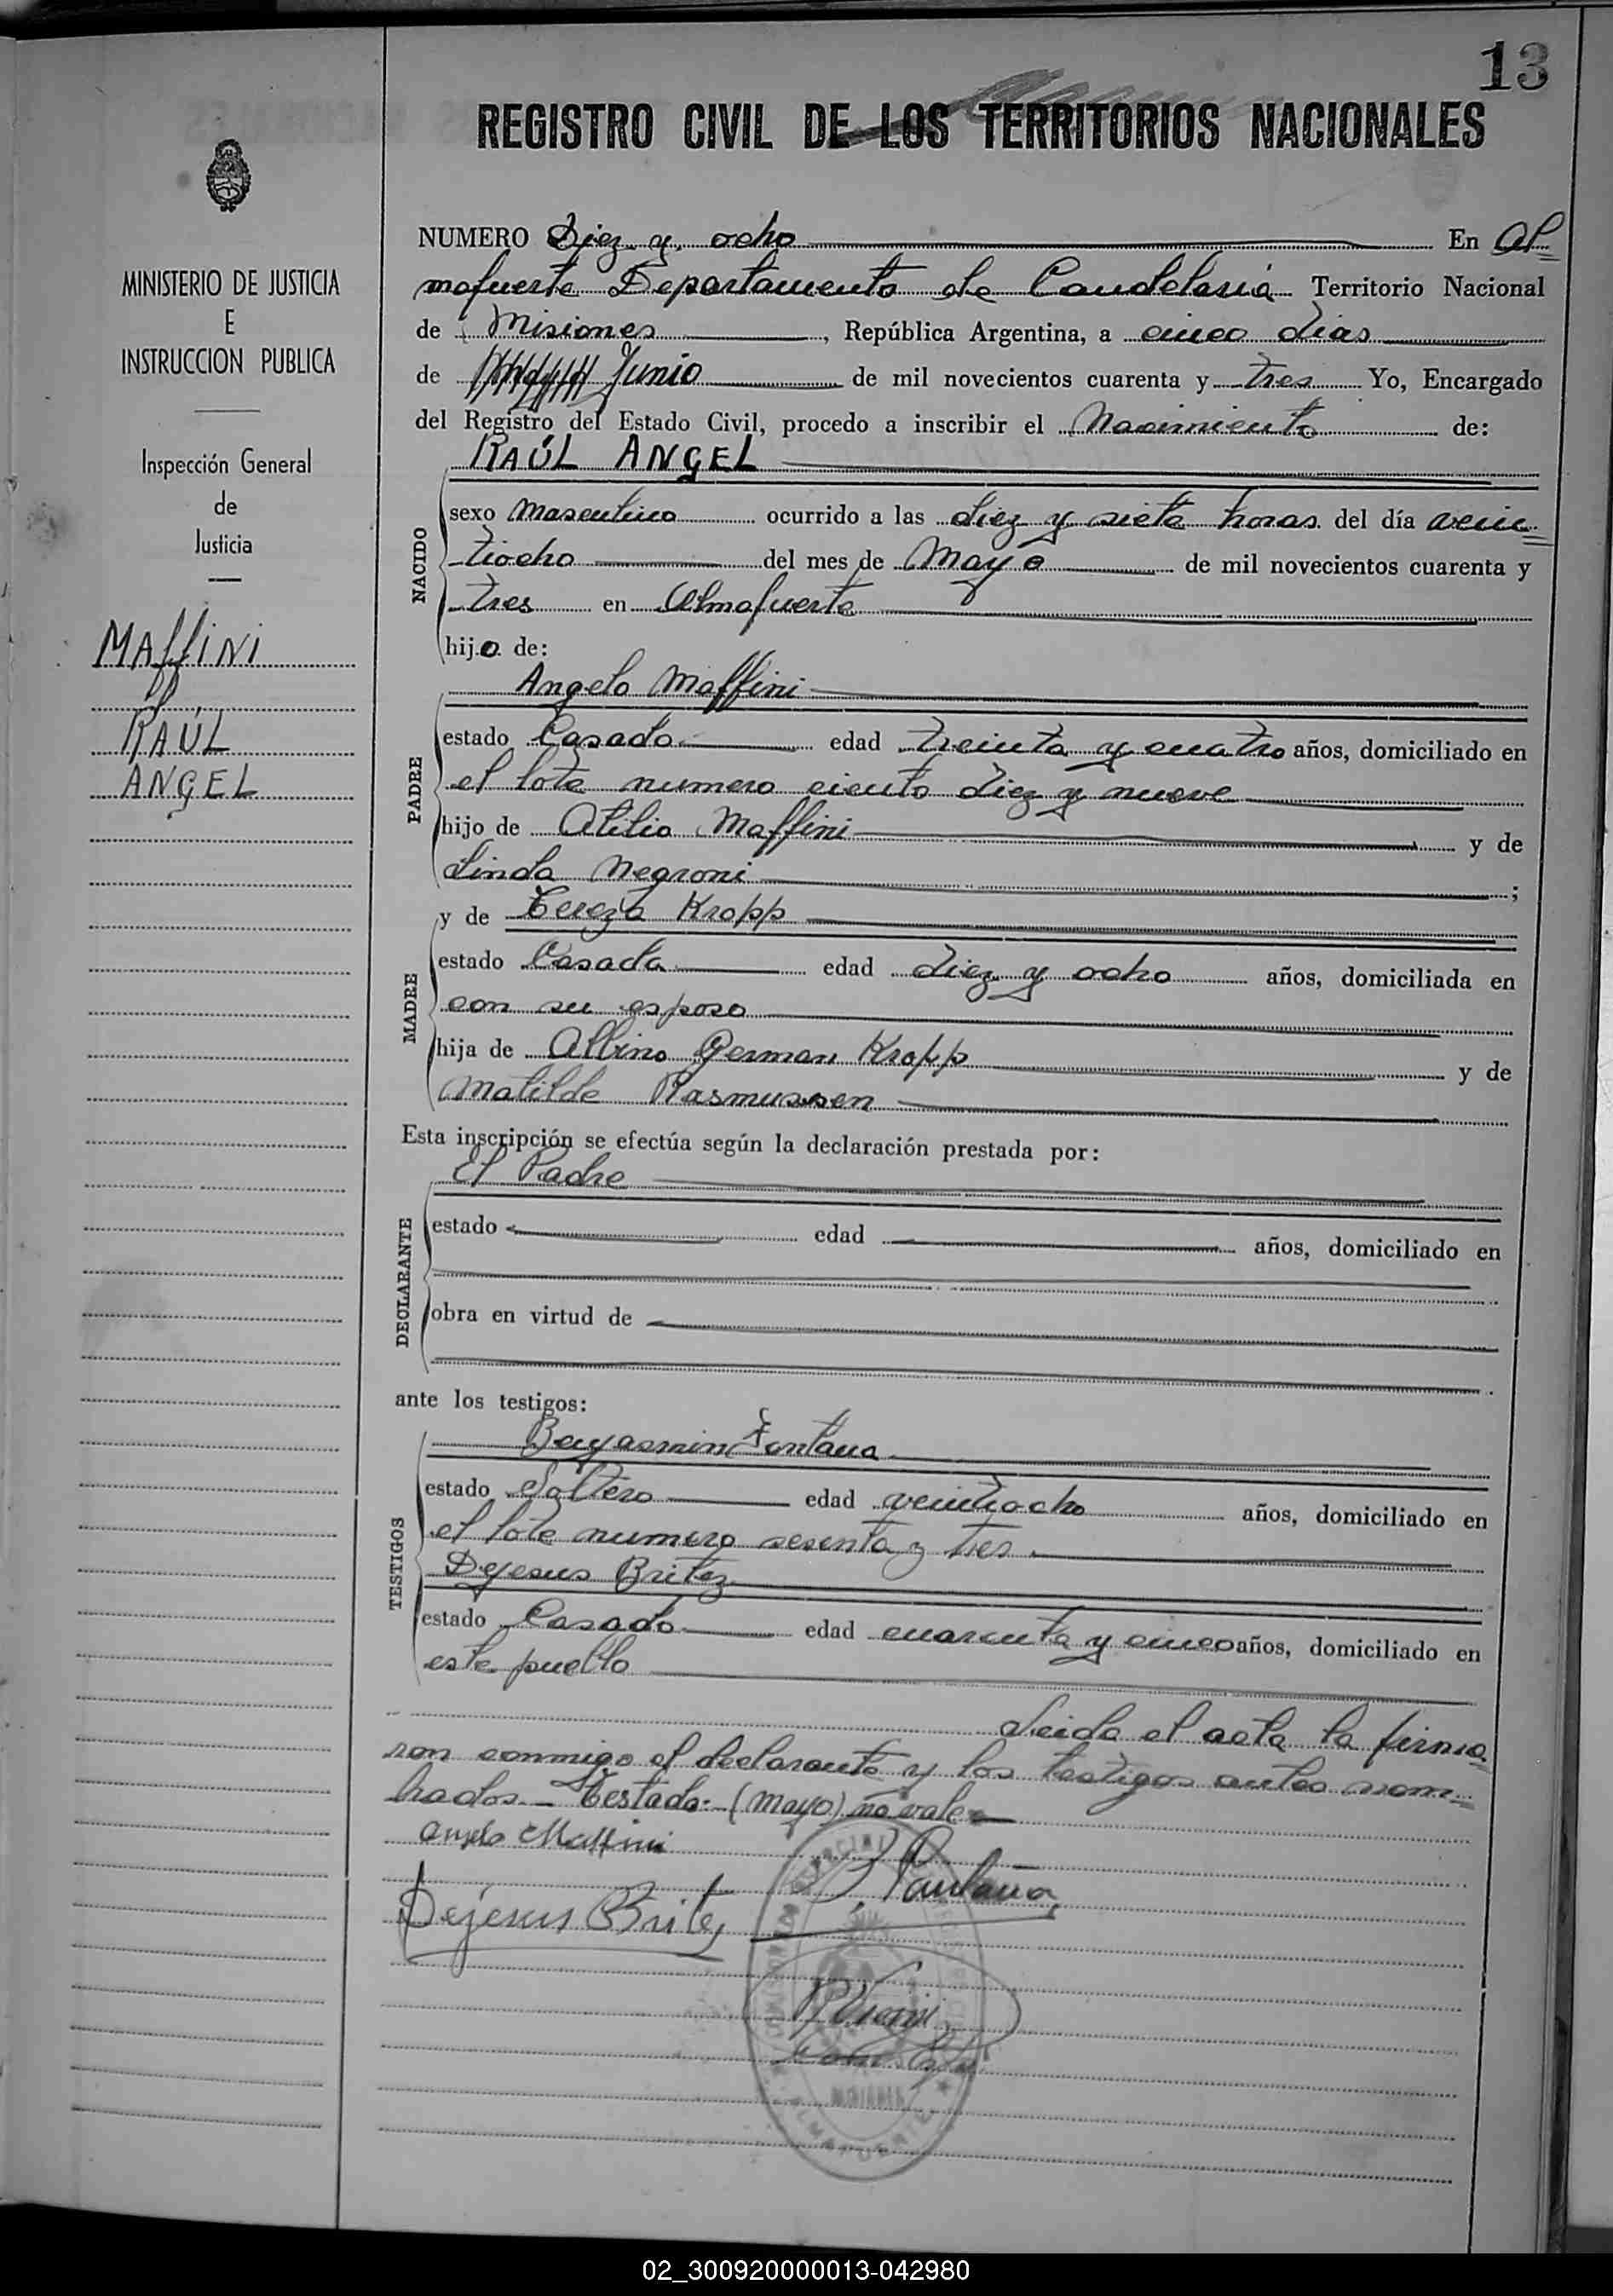 13
REGISTRO CIVIL DE LOS TERRITORIOS NACIONALES
MINISTERIO DE JUSTICIA
E
INSTRUCCION PUBLICA
Inspección General
de
Justicia
MAffiNi
RAÚL
ANGEL
NUMERO Diez y ocho En Al=
mafuerte Departamento de Candelaria Territorio Nacional
de Misiones, República Argentina, a cinco dias
de Mayo Junio de mil novecientos cuarenta y tres Yo, Encargado
del Registro del Estado Civil, procedo a inscribir el Nacimiento de:
RAÚL ANGEL
NACIDO
sexo masculino ocurrido a las diez y siete horas del día vein=
tiocho del mes de Mayo de mil novecientos cuarenta y
tres en Almafuerte
hijo de:
Angelo Maffini
PADRE
estado Casado edad treinta y cuatro años, domiciliado en
el lote numero ciento diez y nueve
hijo de Atilio Maffini y de
Linda Negroni ;
y de Tereza Kropp
MADRE
estado Casada edad diez y ocho años, domiciliada en
con su esposo
hija de Albino German Kropp y de
Matilde Rasmussen
Esta inscripción se efectúa según la declaración prestada por:
El Padre
DECLARANTE
estado edad años, domiciliado en
obra en virtud de
ante los testigos:
Benjasmin Fontana
TESTIGOS
estado Soltero edad veintiocho años, domiciliado en
el lote numero sesenta y tres
Dejesus Britez
estado Casado edad cuarenta y cinco años, domiciliado en
este pueblo
Leida el acta la firma=
ron conmigo el declarante y los testigos antes nom=
brados.- Testado:-(mayo) no vale
Angelo Maffini
B. Fontana
Dejesus Britez
MISIONES
ALMAFUERTE
02_300920000013-042980